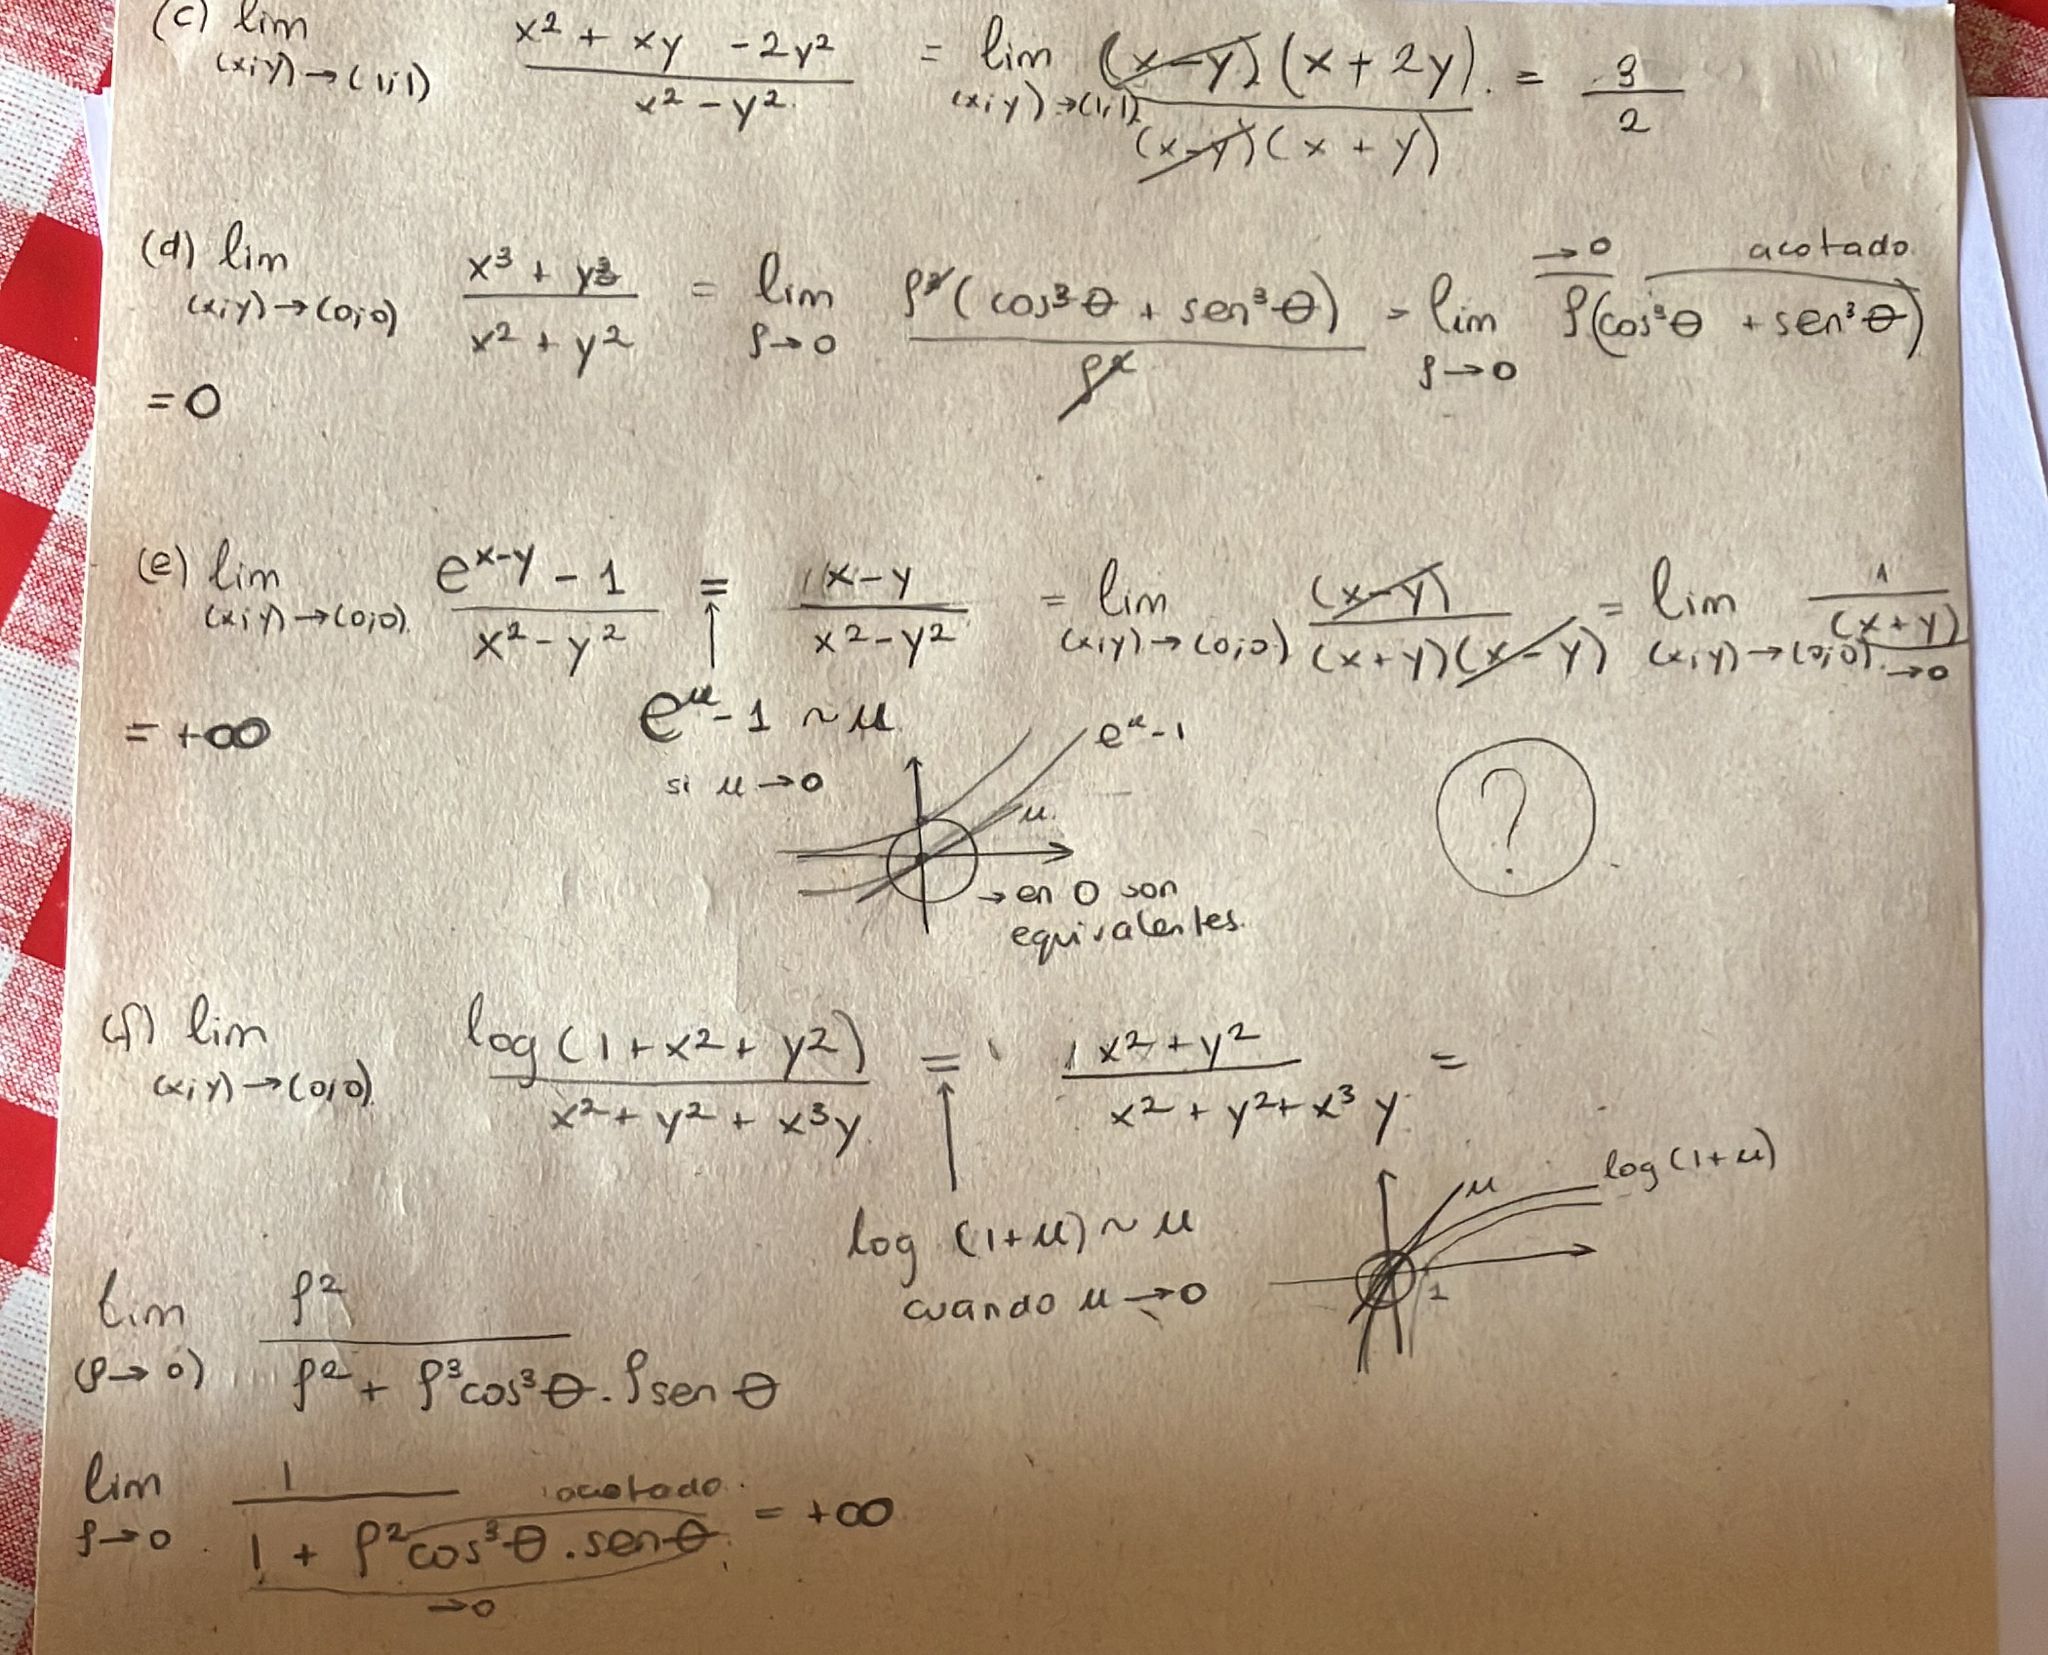 (c) lim (x;y)→(1;1) x² + xy - 2y² / x² - y² = lim (x;y)→(1;1) (x-y)(x+2y) / (x-y)(x+y) = 3/2
(d) lim (x;y)→(0;0) x³ + y³ / x² + y² = lim ρ→0 ρ³(cos³θ + sen³θ) / ρ² = lim ρ→0 ρ(cos³θ + sen³θ)
→0 acotado
= 0
(e) lim (x;y)→(0;0) e^(x-y) - 1 / x² - y² = x-y / x²-y² = lim (x;y)→(0;0) (x-y) / (x+y)(x-y) = lim (x;y)→(0;0) 1 / (x+y) →0
= +∞
e^u - 1 ~ u
si u→0
e^u - 1
u
→ en 0 son
equivalentes.
?
(f) lim (x;y)→(0;0) log(1+x²+y²) / x²+y²+x³y = x²+y² / x²+y²+x³y =
log(1+u) ~ u
cuando u→0
u
log(1+u)
1
lim (ρ→0) ρ² / ρ² + ρ³cos³θ.ρsenθ
lim ρ→0 1 / 1 + ρ²cos³θ.senθ = +∞
acotado
→0